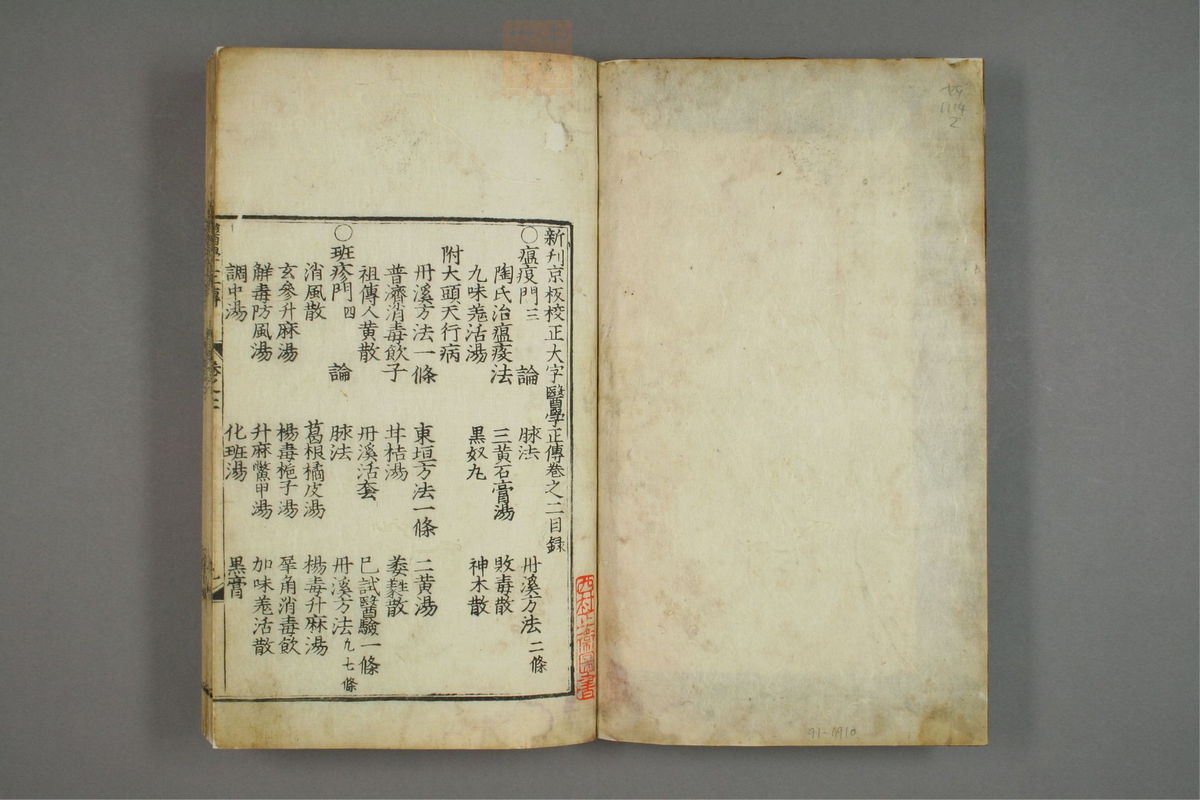 新刋京板校正大字醫學正傳卷之二目録
○瘟疫門三 論 脉法 丹溪方法二條
陶氏治瘟疫法 三黃石膏湯 敗毒散
九味羗活湯 黑奴丸 神木散
附大頭天行病
丹溪方法一條 東垣方法一條 二黃湯
普濟消毒飲子 甘桔湯 萎蕤散
祖傳人黃散 丹溪活套 已試醫驗一條
○班疹門四 論 脉法 丹溪方法凡七條
消風散 葛根橘皮湯 陽毒升麻湯
玄參升麻湯 陽毒梔子湯 犀角消毒飲
解毒防風湯 升麻鱉甲湯 加味羗活散
調中湯 化班湯 黑膏
醫學正傳 卷之二
91-1910